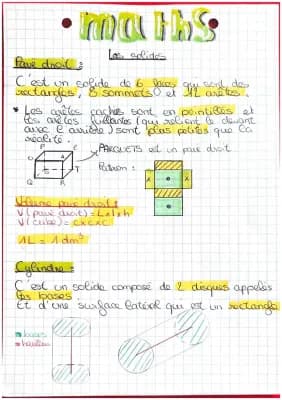 • maths •
Les solides
Pavé droit :
C'est un solide de 6 faces qui sont des
rectangles, 8 sommets et 12 arêtes.
* Les arêtes cachés sont en pointillés et
les arêtes fuillantes (qui relient le devant
avec l'arrière) sont plus petites que la
réalité.
P E
A
T
Q R
PARQUETS est un pavé droit
Patron :
x x
Volume pavé droit :
V (pavé droit) = L x l x h
V (cube) = c x c x c
1L = 1 dm³
Cylindre :
C'est un solide composé de 2 disques appelés
les bases
Et d'une surface latéral qui est un rectangle
bases
hauteur